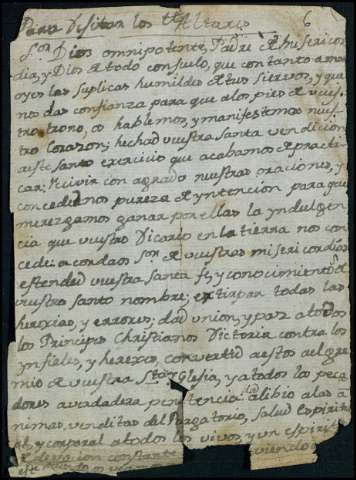 Para Visitar los Altares 6
Sor. Dios omnipotente, Padre de Misericor
dia, y Dios de todo consuelo, que con tanto amor
oyes las suplicas humildes de tus siervos, y que
nos das confianza para que a los pies de vues
tro trono, os hablemos, y manifestemos nues
tro Corazon; hechad vuestra santa vendicion
a este santo exercicio que acabamos de practi
car; Recivir con agrado nuestras oraciones, y
concedednos pureza de yntencion para que
merezgamos ganar por ellas la yndulgen
cia que vuestro Vicario en la tierra nos con
cede: acordaos Sor. de vuestras misericordias
estended vuestra santa fe, y conocimiento de
vuestro santo nombre; extirpan todas las
heregias, y errores; dad union, y paz a todos
los Principes Christianos Victoria contra los
ynfieles, y hereges, convertid a estos al gre
mio de vuestra Sta. Yglesia, y a todos los peca
dores a verdadera penitencia; alibio a las a
nimas venditas del Purgatorio, Salud espiritu
al, y corporal a todos los vivos, y un espiritu
de devocion constante viendo
este mundo os